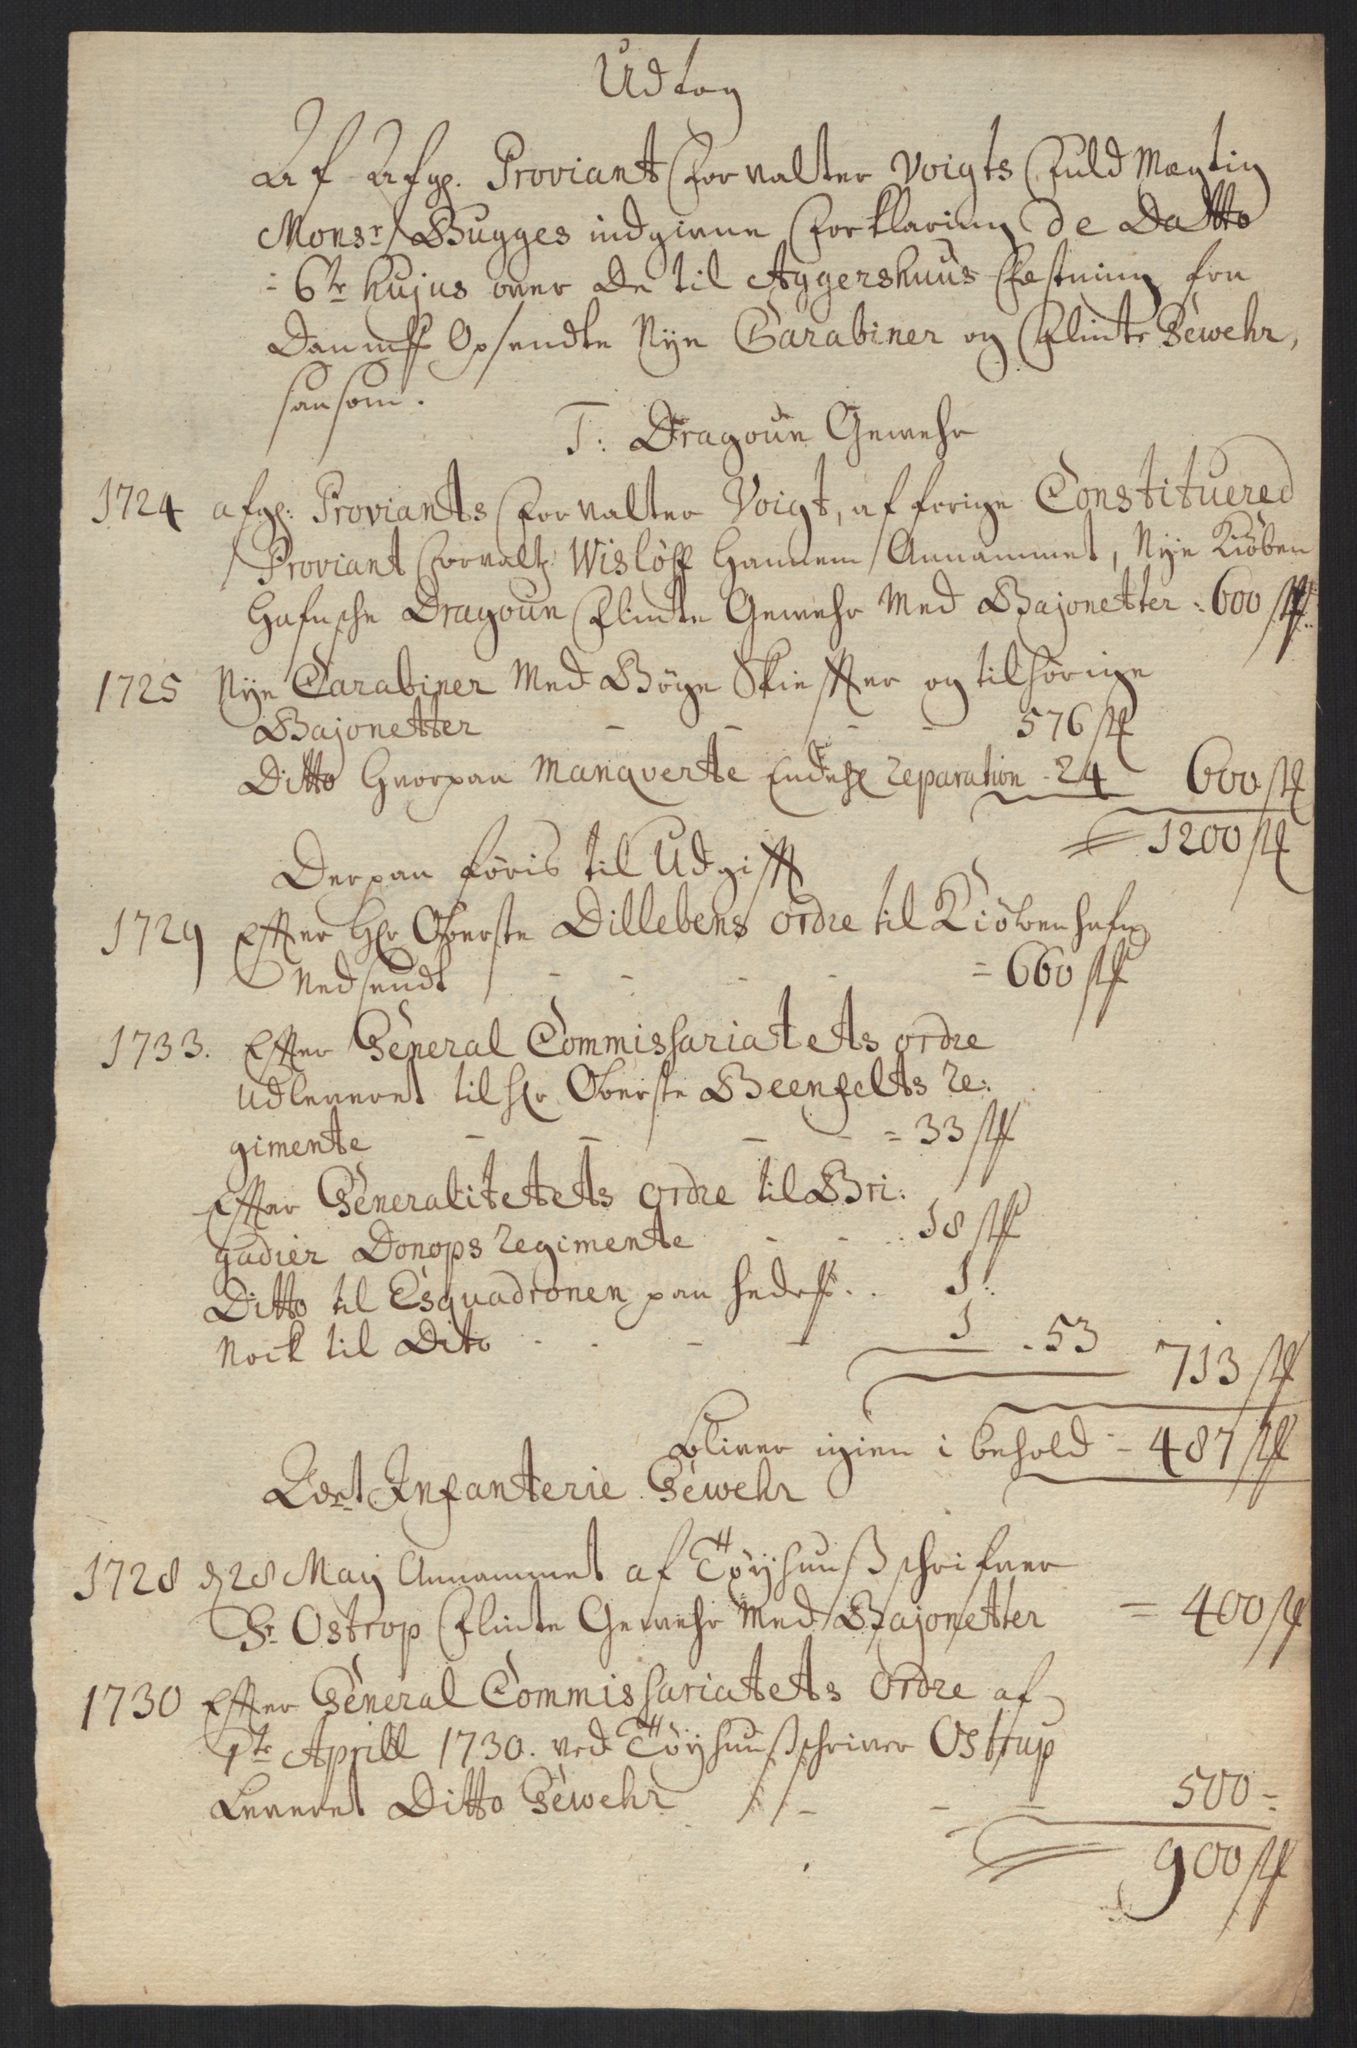 Udtog
Af Afg. Proviant Forvalter Voigts Fuld Mægtig
Monsr Bugges indgivne Forklaring de Datto
6te hujus over de til Aggershuus Fæstning fra
Danmk Opsendte Nye Carabiner og Flinte Gewehr,
saasom.
T. Dragoun Gewehr
1724 afg. Proviants Forvalter Voigt, af forige Constituered
Proviant Forvalt. Wisløff Hannem Annammet, Nye Kiöben
hafnsche Dragoun Flindte Gewehr Med Bajonetter : 600 st.
1725 Nye Carabiner Med Böge Skieffter og tilhörige
Bajonetter - - - - 576 st
Ditto Hvorpaa Manqverte Endehl reparation - 24 600 st
1200 st
Derpaa föris til Udgifft
1729 Effter Hr Oberste Dillebens ordre til Kiöbenhafn
Nedsendt - - - - = 660 st
1733. Effter General Commissariatets ordre
Udleveret til Hr Oberste Beenfelts Re:
gimente - - - - = 33 st
Effter Generalitetets ordre til Bri:
gadier Donops Regimente - - 18 st
Ditto til Esquadronen paa Hedem. . . 1.
Nock til Dito - - - - 1 . 53 713 st
Bliver igien i behold - 487 st
Det Infanterie Gewehr
1728 d 28 Maij Annammet af Töyhuusschrifver
Sr Ostrop Flinte Gewehr Med Bajonetter = 400 st
1730 Effter General Commissariatets Ordre af
1te Aprill 1730. ved Töyhuusschriver Ostrup
Leveret Ditto Gewehr - - - 500 -
900 st